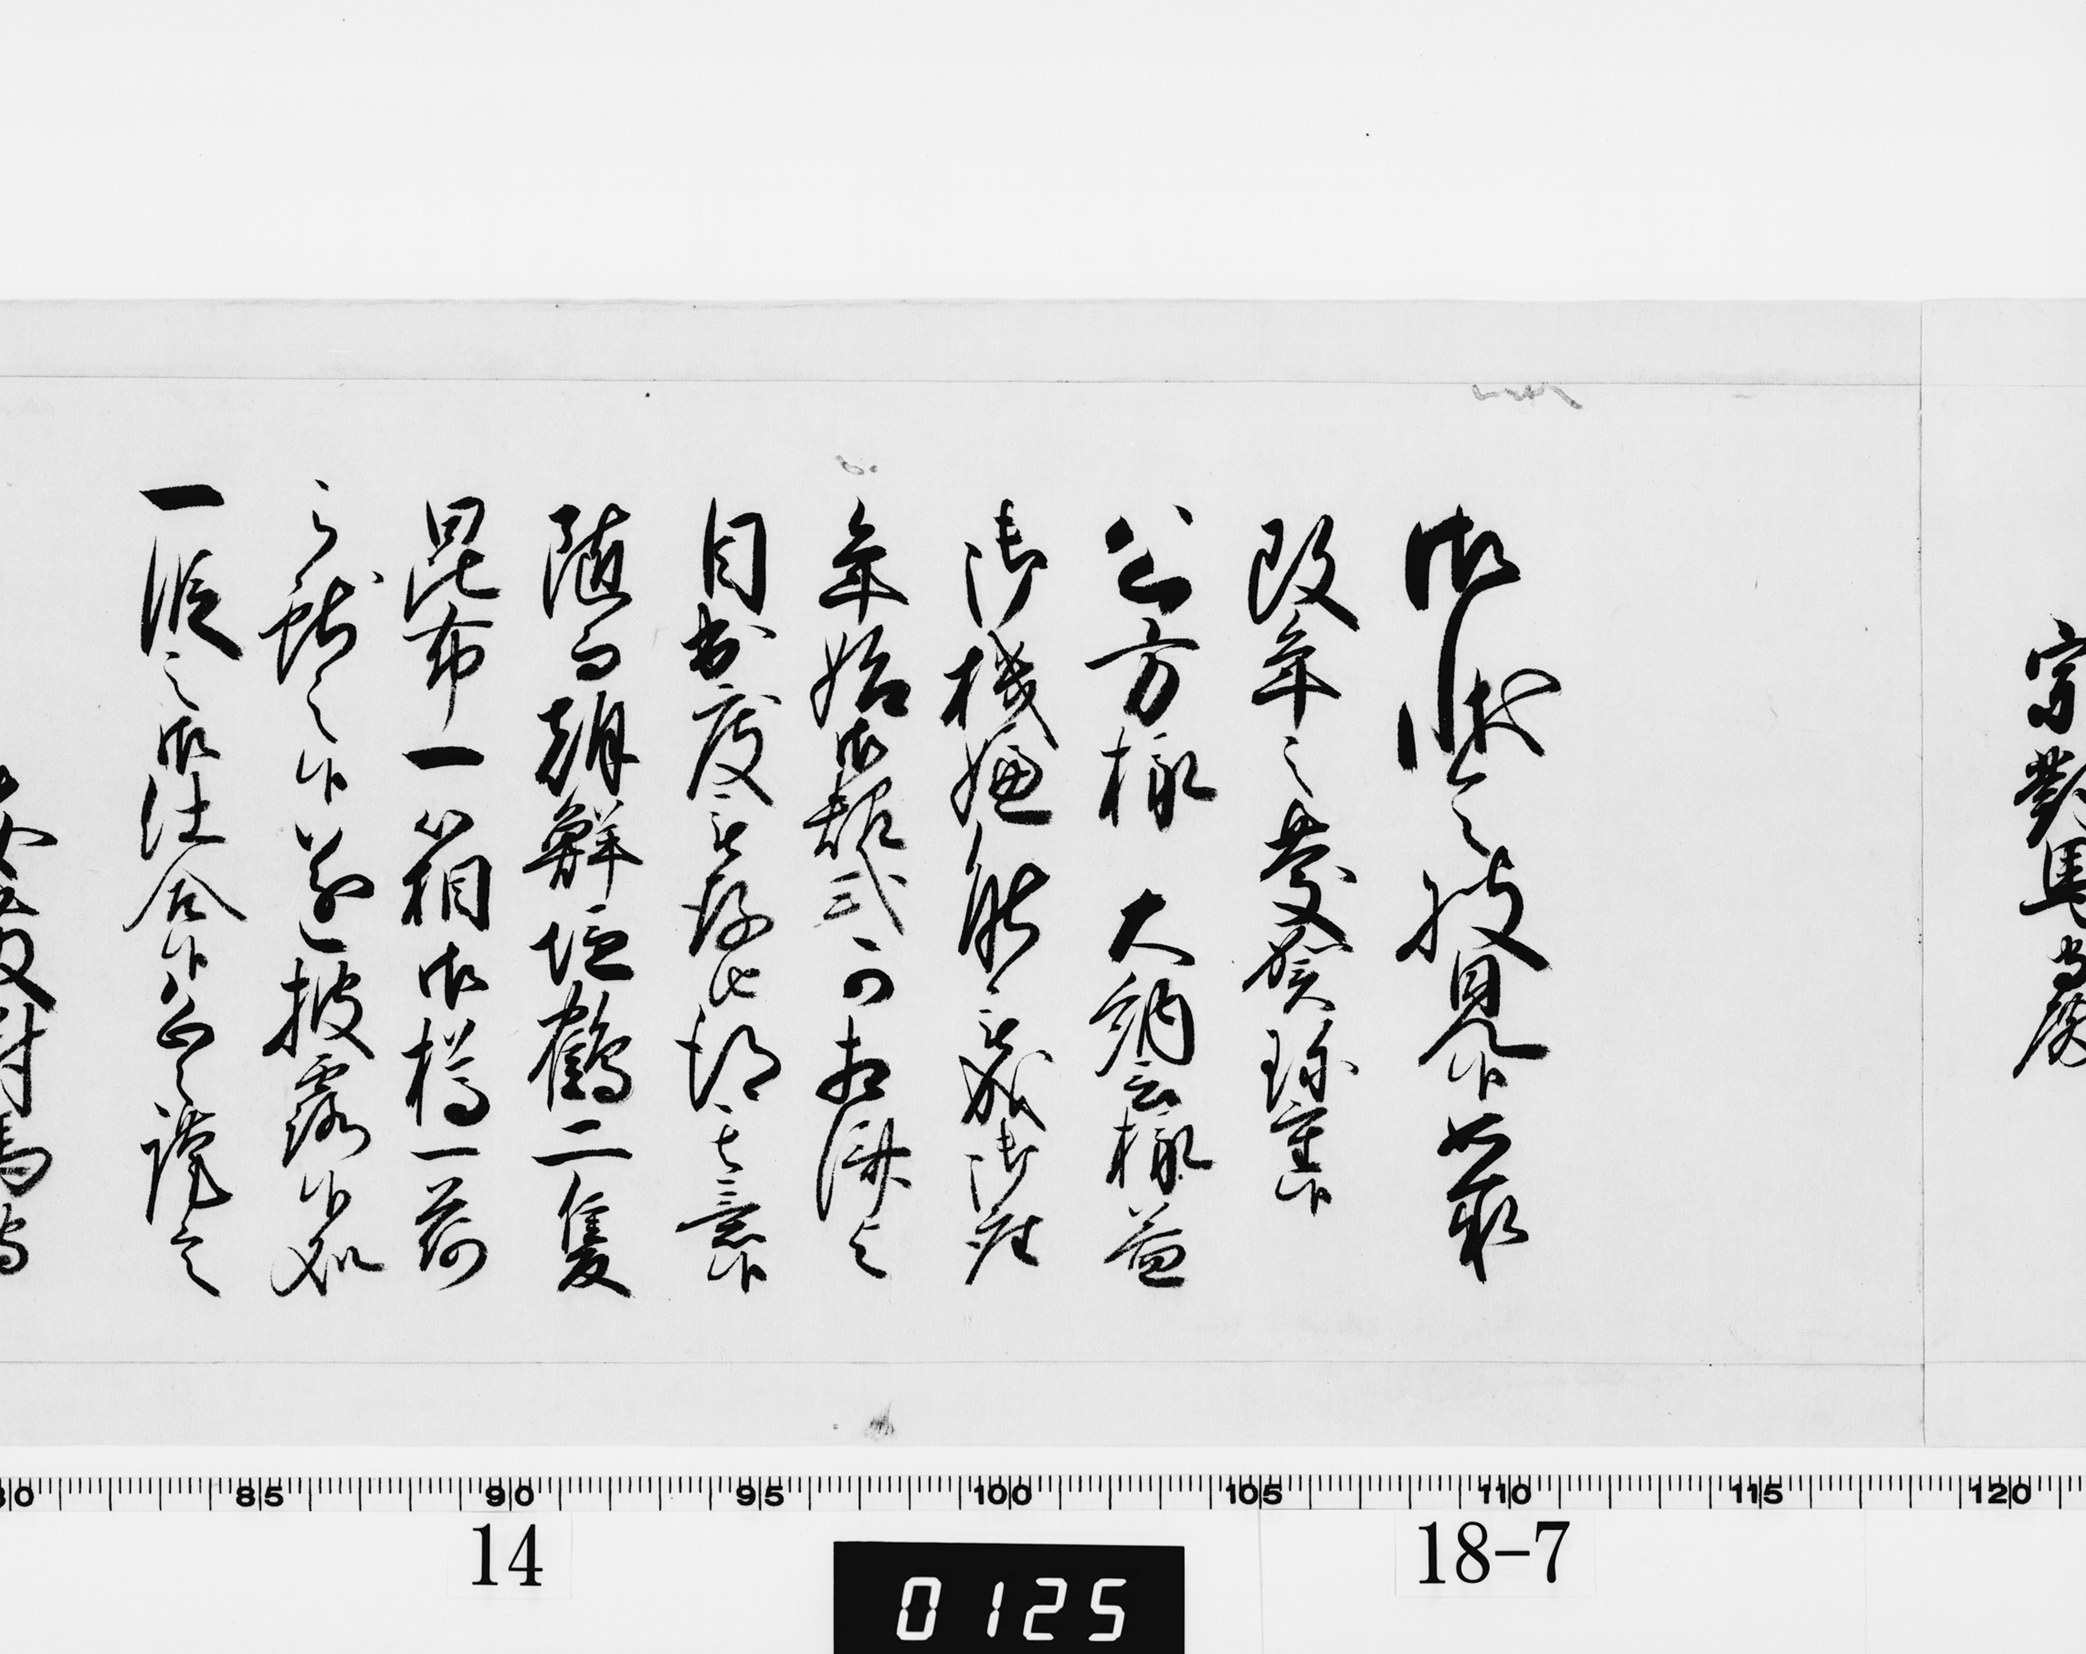 宗對馬守殿
御状令披見候如承
改年之慶賀珍重候
公方様 大納言様益
御機嫌能被成御座
年始御規式可相済之
目出度被存此段得其意候
随而朝鮮塩鶴二隻
昆布一箱御樽一荷
被献之候遂披露候処
一段之御仕合候恐々謹言
安藤対馬守
80 85 90 95 100 105 110 115 120
14
18-7
0125